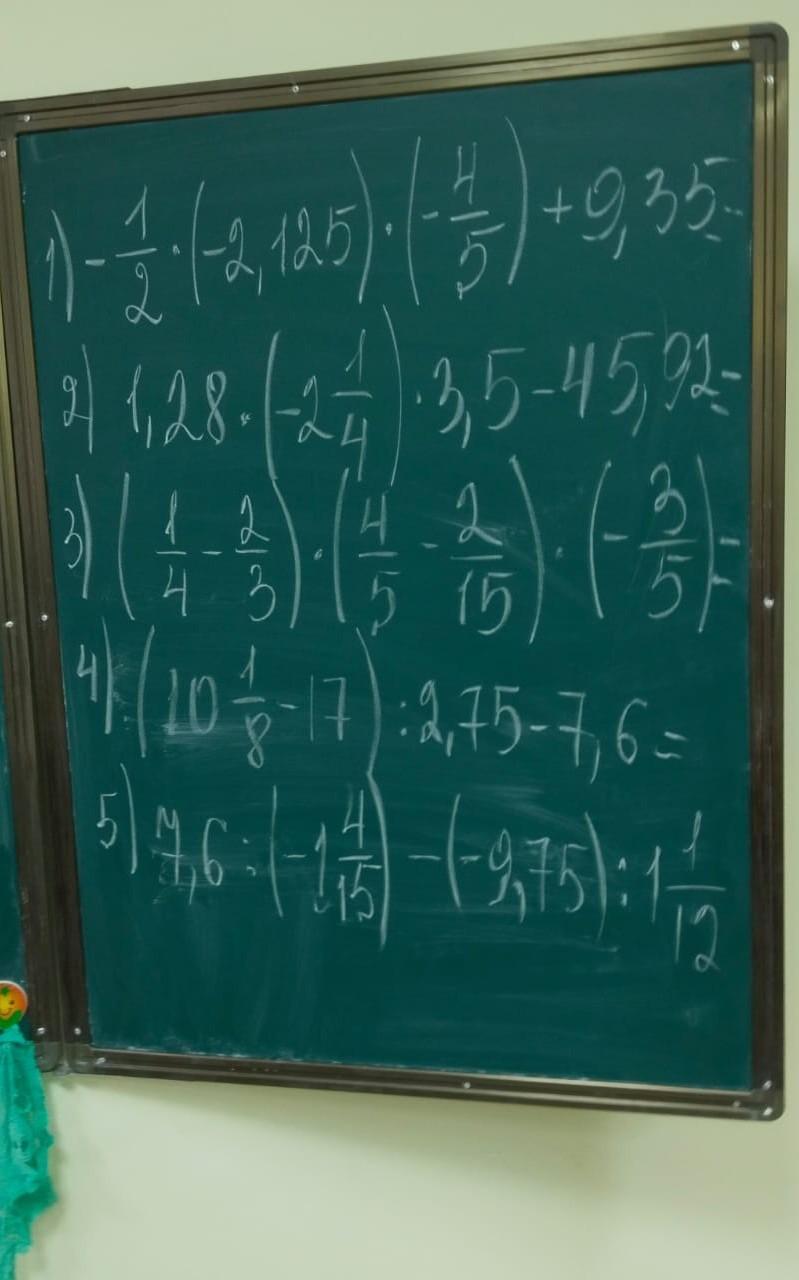 1) -1/2 · (-2,125) · (-4/5) + 9,35=
2) 1,28 · (-2 1/4) · 3,5 - 45,92=
3) (1/4 - 2/3) · (4/5 - 2/15) · (-3/5)=
4) (10 1/8 - 17) : 2,75 - 7,6 =
5) 7,6 : (-1 4/15) - (-9,75) : 1 1/12